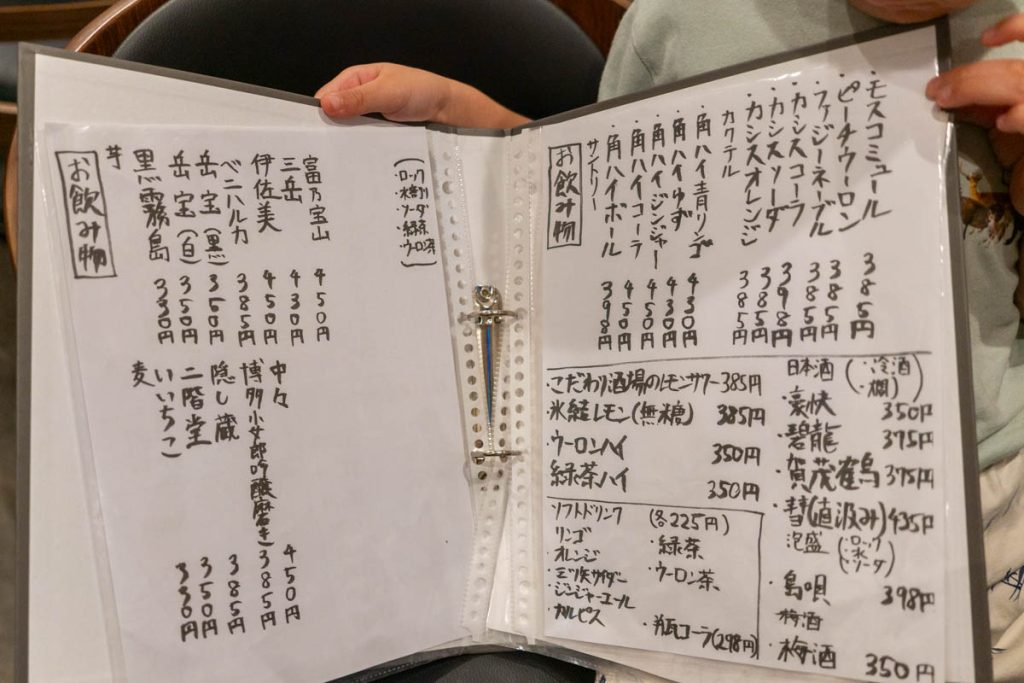 お飲み物
芋
黒霧島 330円
岳宝(白) 350円
岳宝(黒) 350円
ベニハルカ 385円
伊佐美 450円
三岳 430円
富乃宝山 450円
(・ロック
・水割り
・ソーダ
・緑茶
・ウーロン茶)
麦
いいちこ 330円
二階堂 350円
隠し蔵 385円
博多小女郎吟醸磨き 385円
中々 450円
お飲み物
サントリー
・角ハイボール 398円
・角ハイコーラ 450円
・角ハイジンジャー 450円
・角ハイゆず 430円
・角ハイ青リンゴ 430円
カクテル
・カシスオレンジ 385円
・カシスソーダ 385円
・カシスコーラ 398円
・ファジーネーブル 385円
・ピーチウーロン 385円
・モスコミュール 385円
・こだわり酒場のレモンサワー 385円
・氷結レモン(無糖) 385円
・ウーロンハイ 350円
・緑茶ハイ 350円
ソフトドリンク (各225円)
・リンゴ
・オレンジ
・三ツ矢サイダー
・ジンジャーエール
・カルピス
・緑茶
・ウーロン茶
・瓶コーラ(298円)
日本酒 (・冷酒
・燗)
・豪快 350円
・碧龍 375円
・賀茂雀鳥 375円
・彗(直汲み) 435円
泡盛 (・ロック
・水
・ソーダ)
・島唄 398円
梅酒
・梅酒 350円